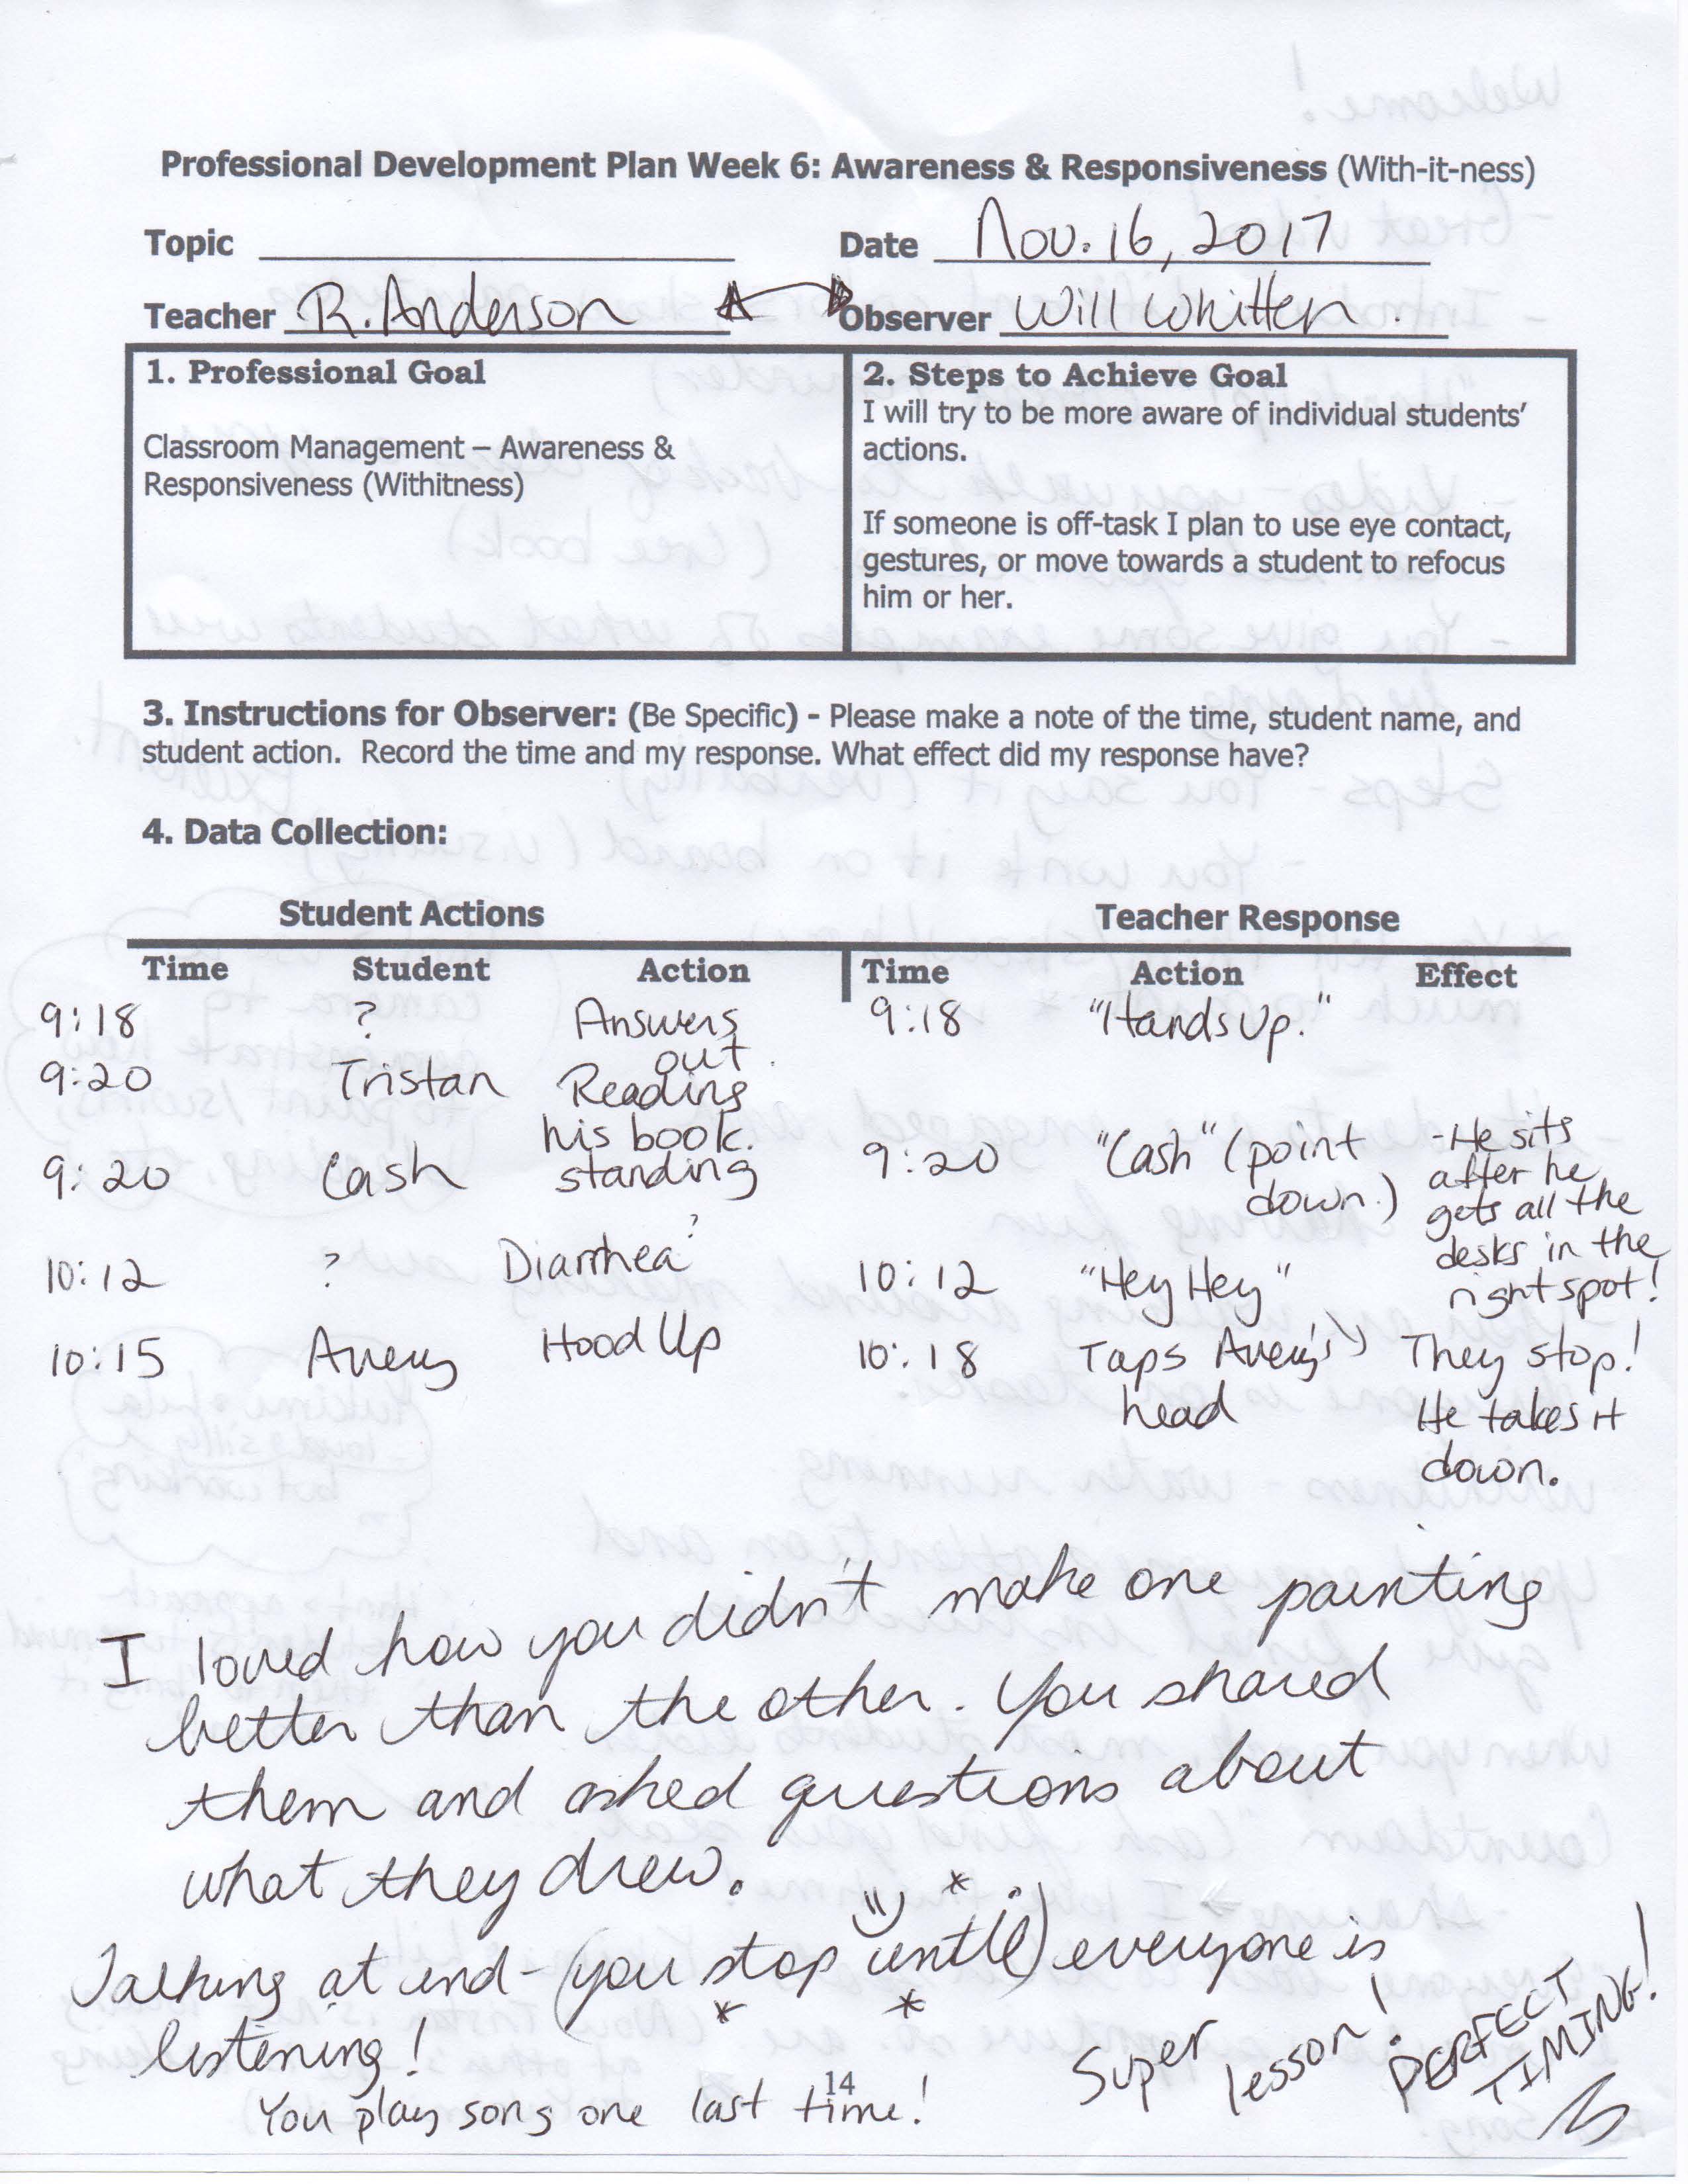 Professional Development Plan Week 6: Awareness & Responsiveness (With-it-ness)
Topic Date Nov. 16, 2017
Teacher R. Anderson Observer Will Whitten
1. Professional Goal
Classroom Management – Awareness &
Responsiveness (Withitness)
2. Steps to Achieve Goal
I will try to be more aware of individual students'
actions.
If someone is off-task I plan to use eye contact,
gestures, or move towards a student to refocus
him or her.
3. Instructions for Observer: (Be Specific) - Please make a note of the time, student name, and
student action. Record the time and my response. What effect did my response have?
4. Data Collection:
Student Actions Teacher Response
Time Student Action Time Action Effect
9:18 ? Answers 9:18 "Hands Up."
out.
9:20 Tristan Reading
his book.
9:20 Cash standing 9:20 "Cash" (point
down.)
-He sits
after he
gets all the
desks in the
right spot!
10:12 ? Diarrhea? 10:12 "Hey Hey"
10:15 Avery Hood Up 10:18 Taps Avery's
head
They stop!
He takes it
down.
I loved how you didn't make one painting
better than the other. You shared
them and asked questions about
what they drew.
Talking at end - (you stop until) everyone is
listening!
You play song one last time!
14
Super lesson!
PERFECT
TIMING!